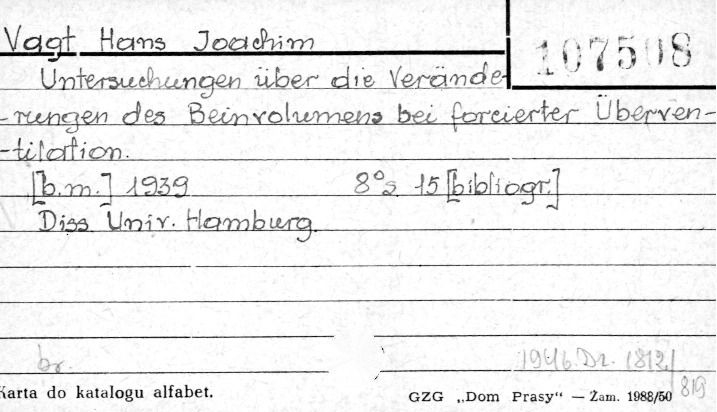 Vagt Hans Joachim
107508
Untersuchungen über die Verände-
-rungen des Beinvolumens bei forcierter Überven-
-tilation.
[b.m.] 1939 8° s 15 [bibliogr.]
Diss Univ. Hamburg.
br.
1946.Dr. 1812/
819
Karta do katalogu alfabet.
GZG „Dom Prasy“ — Zam. 1988/50